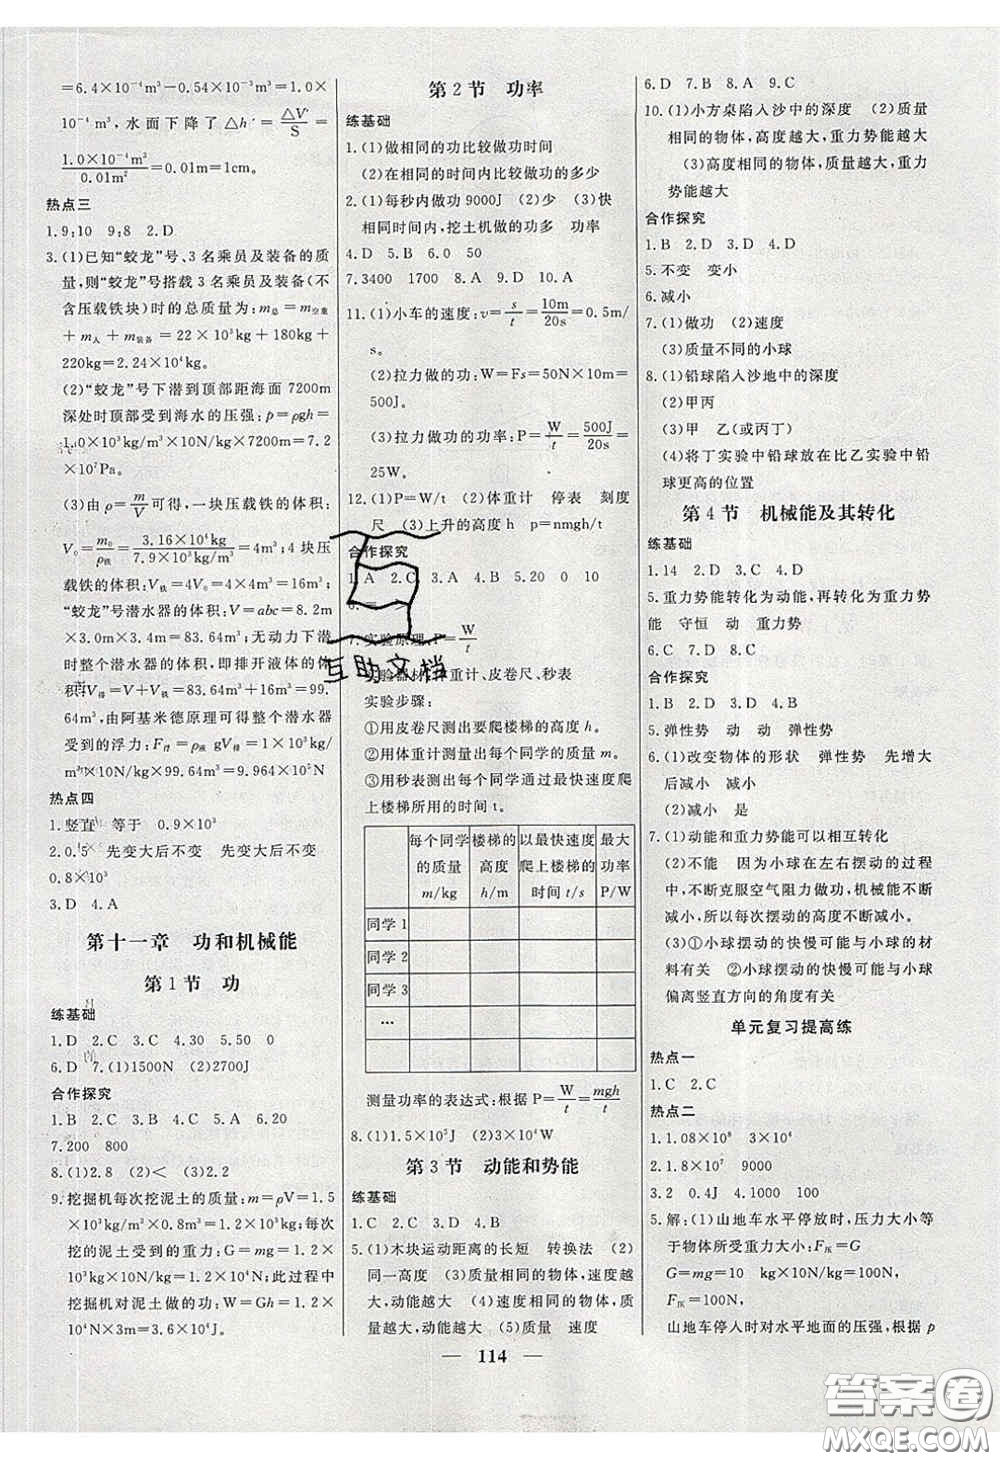 =6.4×10⁻⁴m³-0.54×10⁻³m³=1.0×
10⁻⁴m³,水面下降了△h′=△V′/S=
1.0×10⁻⁴m³/0.01m²=0.01m=1cm。
热点三
1.9:10 9:8 2.D
3.(1)已知“蛟龙”号、3名乘员及装备的质
量,则“蛟龙”号搭载3名乘员及装备(不
含压载铁块)时的总质量为:m总=m空重
+m人+m装备=22×10³kg+180kg+
220kg=2.24×10⁴kg;
(2)“蛟龙”号下潜到顶部距海面7200m
深处时顶部受到海水的压强:p=ρgh=
1.0×10³kg/m³×10N/kg×7200m=7.2
×10⁷Pa。
(3)由ρ=m/V可得,一块压载铁的体积:
V₀=m₀/ρ铁=3.16×10⁴kg/7.9×10³kg/m³=4m³;4块压
载铁的体积:V铁=4V₀=4×4m³=16m³
“蛟龙”号潜水器的体积:V=abc=8.2m
×3.0m×3.4m=83.64m³;无动力下潜
时整个潜水器的体积,即排开液体的体
积:V排=V+V铁=83.64m³+16m³=99.
64m³,由阿基米德原理可得整个潜水器
受到的浮力:F浮=ρ液gV排=1.0×10³kg/
m³×10N/kg×99.64m³=9.964×10⁵N
热点四
1.竖直 等于 0.9×10³
2.0.5 先变大后不变 先变大后不变
0.8×10³
3.D 4.A
第十一章 功和机械能
第1节 功
练基础
1.D 2.C 3.C 4.30 5.50 0
6.D 7.(1)1500N (2)2700J
合作探究
1.B 2.C 3.C 4.C 5.A 6.20
7.200 800
8.(1)2.8 (2)< (3)2.2
9.挖掘机每次挖泥土的质量:m=ρV=1.5
×10³kg/m³×0.8m³=1.2×10³kg;每次
挖的泥土受到的重力:G=mg=1.2×
10³kg×10N/kg=1.2×10⁴N;此过程中
挖掘机对泥土做的功:W=Gh=1.2×
10⁴N×3m=3.6×10⁴J。
第2节 功率
练基础
1.(1)做相同的功比较做功时间
(2)在相同的时间内比较做功的多少
2.(1)每秒内做功9000J (2)少 (3)快
相同时间内,挖土机做的功多 功率
4.D 5.B 6.0 50
7.3400 1700 8.C 9.D 10.A
11.(1)小车的速度:v=s/t=10m/20s=0.5m/
s。
(2)拉力做的功:W=Fs=50N×10m=
500J。
(3)拉力做功的功率:P=W/t=500J/20s=
25W。
12.(1)P=W/t (2)体重计 停表 刻度
尺 (3)上升的高度h p=nmgh/t
合作探究
1.A 2.C 3.A 4.B 5.20 0 10
6.= =
7.实验原理:P=W/t
实验器材:体重计、皮卷尺、秒表
实验步骤:
①用皮卷尺测出要爬楼梯的高度h。
②用体重计测量出每个同学的质量m。
③用秒表测出每个同学通过最快速度爬
上楼梯所用的时间t。
每个同学的质量m/kg 楼梯的高度h/m 以最快速度爬上楼梯的时间t/s 最大功率P/W
同学1
同学2
同学3
…
测量功率的表达式:根据P=W/t=mgh/t
8.(1)1.5×10⁵J (2)3×10⁴W
第3节 动能和势能
练基础
1.C 2.C 3.D 4.B
5.(1)木块运动距离的长短 转换法 (2)
同一高度 (3)质量相同的物体,速度越
大,动能越大 (4)速度相同的物体,质量
越大,动能越大 (5)质量 速度
6.D 7.B 8.A 9.C
10.(1)小方桌陷入沙中的深度 (2)质量
相同的物体,高度越大,重力势能越大
(3)高度相同的物体,质量越大,重力
势能越大
合作探究
1.B 2.D 3.D 4.C
5.不变 变小
6.减小
7.(1)做功 (2)速度
(3)质量不同的小球
8.(1)铅球陷入沙地中的深度
(2)甲丙
(3)甲 乙(或丙丁)
(4)将丁实验中铅球放在比乙实验中铅
球更高的位置
第4节 机械能及其转化
练基础
1.14 2.D 3.D 4.D
5.重力势能转化为动能,再转化为重力势
能 守恒 动 重力势
6.C 7.D 8.C
合作探究
1.B 2.D 3.D 4.B
5.弹性势 动 动 弹性势
6.(1)改变物体的形状 弹性势 先增大
后减小 减小
(2)减小 是
7.(1)动能和重力势能可以相互转化
(2)不能 因为小球在左右摆动的过程
中,不断克服空气阻力做功,机械能不断
减小,所以每次摆动的高度不断减小。
(3)①小球摆动的快慢可能与小球的材
料有关 ②小球摆动的快慢可能与小球
偏离竖直方向的角度有关
单元复习提高练
热点一
1.C 2.C
热点二
1.1.08×10⁸ 3×10⁴
2.1.5×10⁴ 9000
3.2 0.4J 4.1000 100
5.解:(1)山地车水平停放时,压力大小等
于物体所受重力大小:F压=G
G=mg=10 kg×10N/kg=100N,
F压=100N,
山地车停人时对水平地面的压强,根据p
114
互助文档
答案圈
MXQE.COM